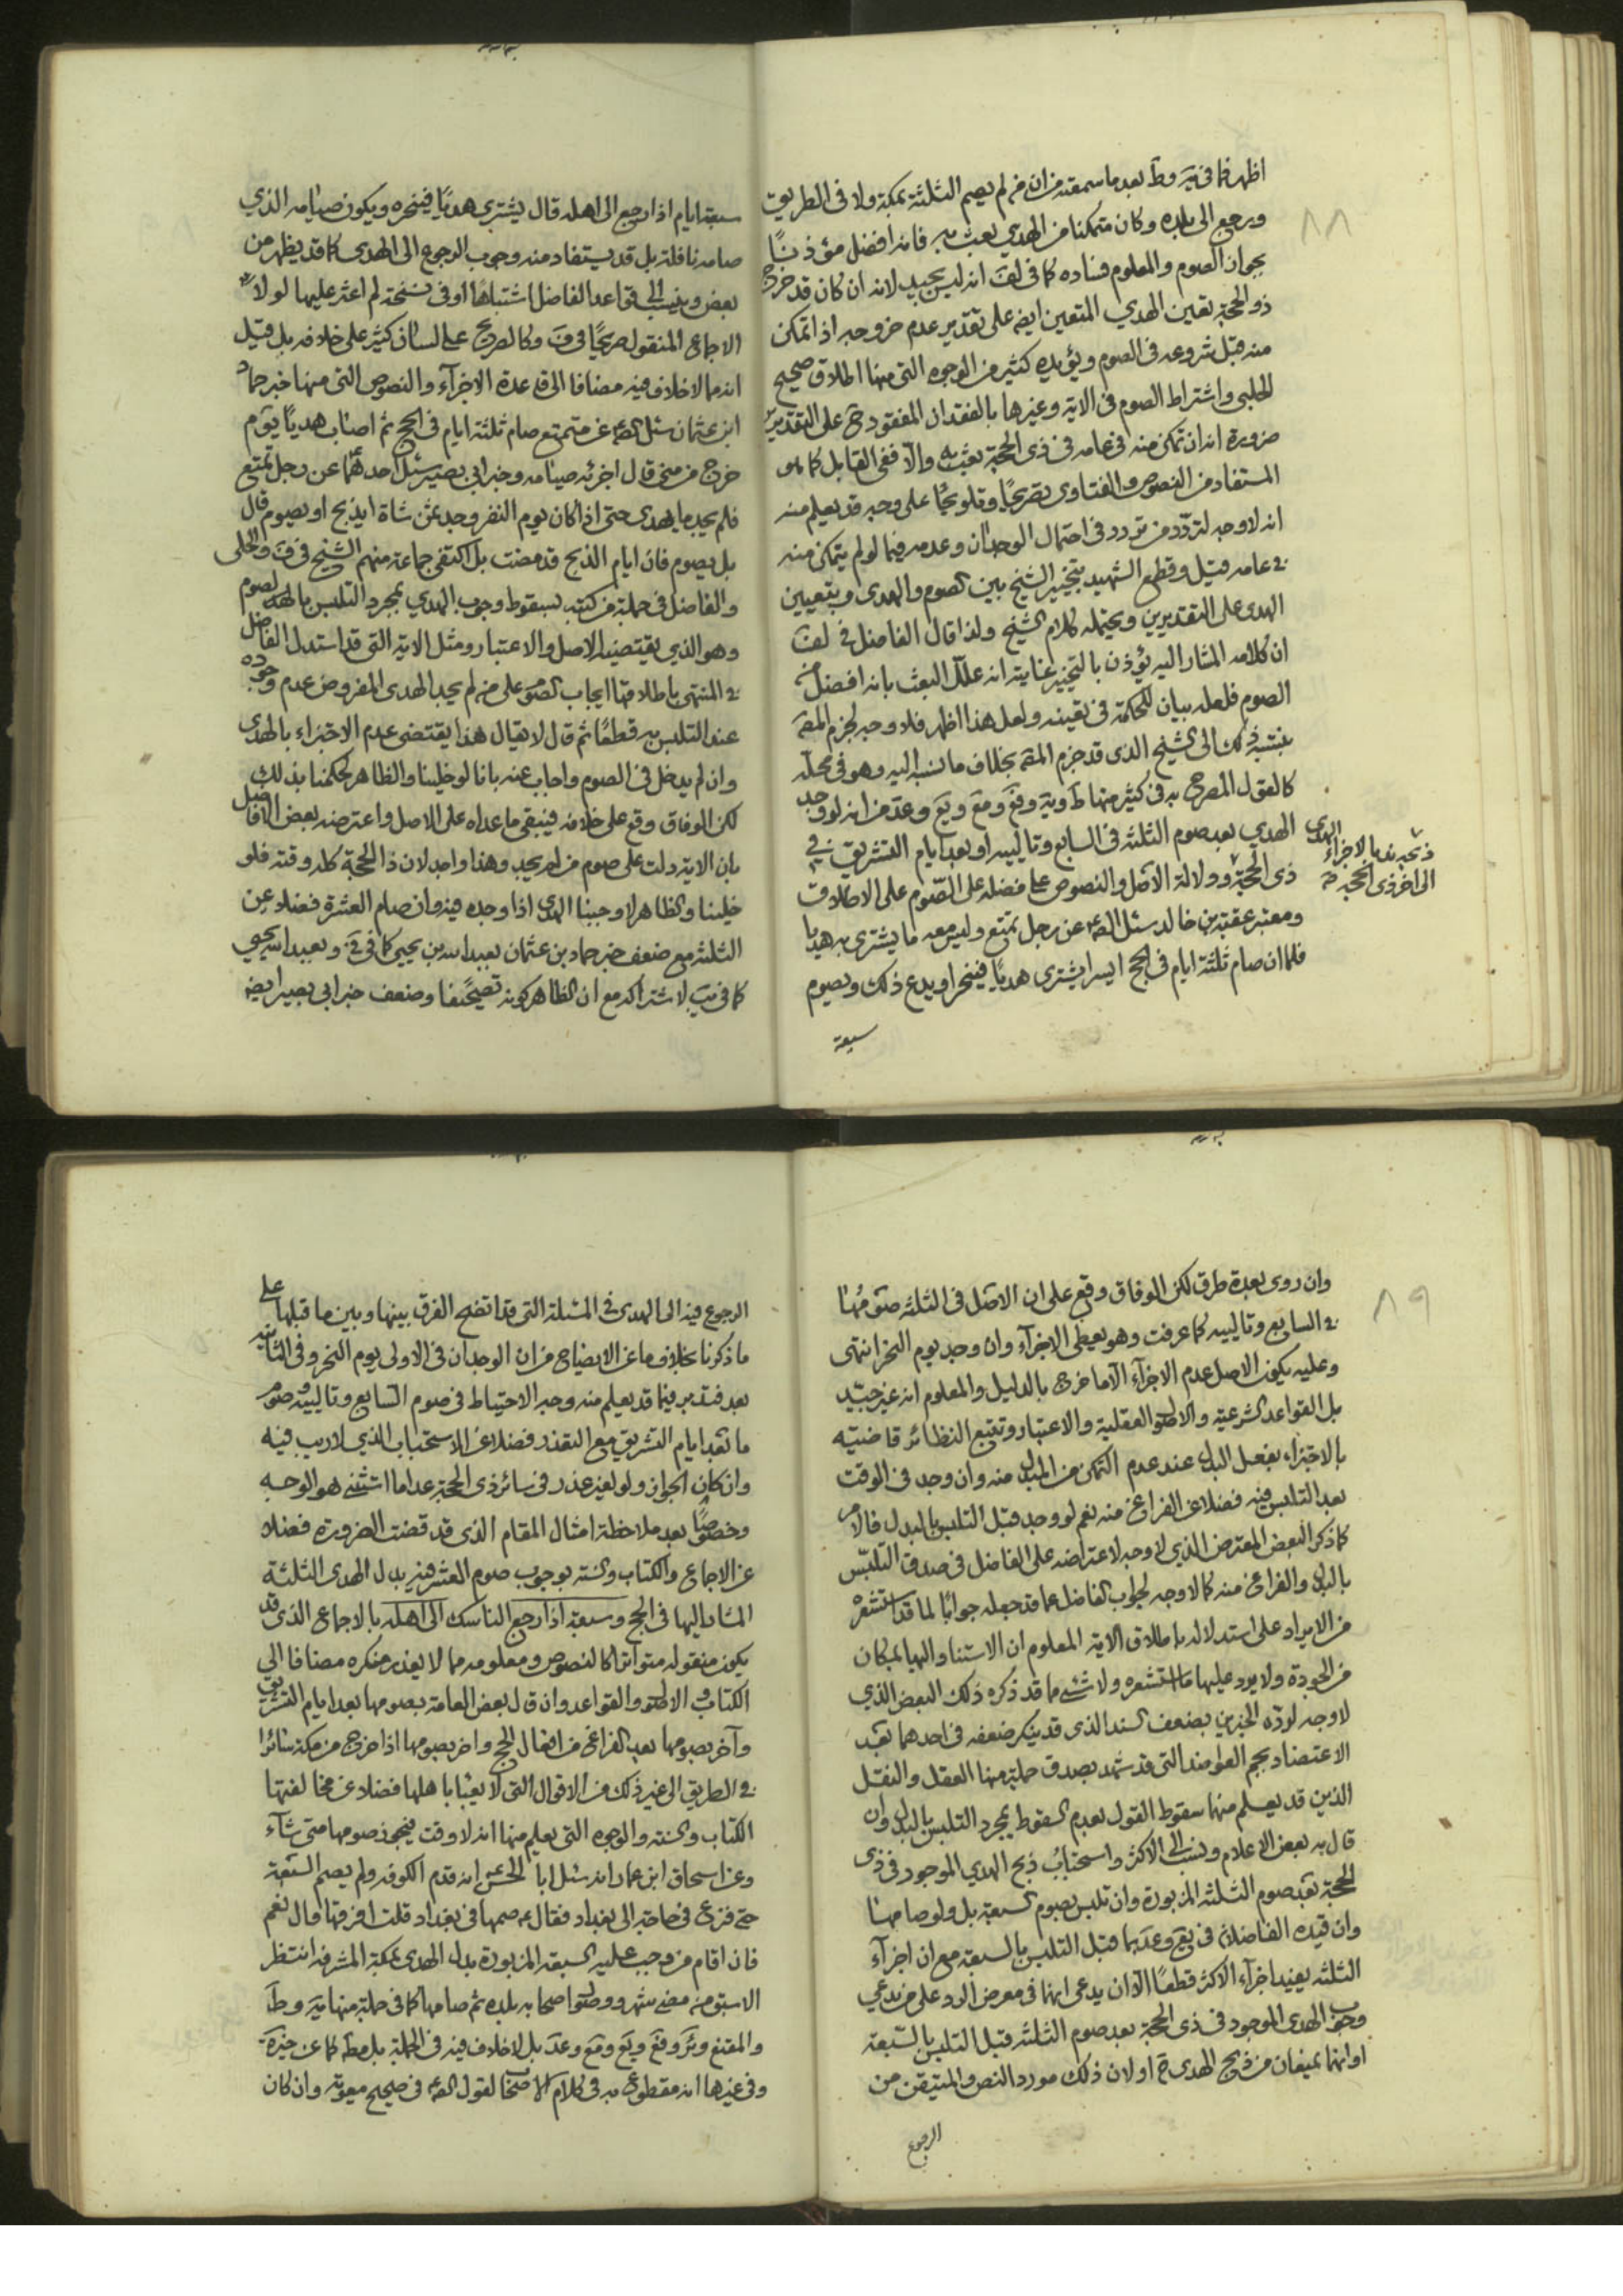 ٨٨
اظهر فما فى يَه وطَ بعد ما سمعته من ان من لم يصم الثلثة بمكة ولا فى الطريق
ورجع الى بلده وكان متمكنا من الهدي بعث به فانه افضل مؤذنًا
بجواز الصوم والمعلوم فساده كما فى لف انه ليس بجيد لانه ان كان قد خرج
ذو الحجة تعين الهدي المتعين ايضه على تقدير عدم خروجه اذا تمكن
منه قبل شروعه فى الصوم ويؤيده كثير من الوجوه التى منها اطلاق صحيح
الحلبى واشتراط الصوم فى الاية وغيرها بالفقدان المفقود ح على التقديرين
ضرورة انه ان تمكن منه فى عامه فى ذى الحجة بعث به والّا ففى القابل كما هو
المستفاد من النصوص والفتاوى تصريحًا وتلويحًا على وجه قد يعلم منه
انه لا وجه لتردّد من تردد فى احتمال الوجدان وعدمه فيما لو لم يتمكن منه
فى عامه قيل وقطع الشهيد بتخيير الشيخ بين الصوم والهدى وبتعيين
الهدى على التقديرين ويحتمله كلام الشيخ ولذا قال الفاضل فى لف
ان كلامه المشار اليه يؤذن بالتخيير غايته انه علّل البعث بانه افضل من
الصوم فلعله بيان للحكمة فى تعينه ولعل هذا اظهر فلا وجه لجزم المقه
بنسبة ذلك الى الشيخ الذى قد جزم المقه بخلاف ما نسبه اليه وهو فى محلّه
كالقول المصرح به فى كثير منها طَ ويَه وفَع ومَع ويَع وعَد من انه لو وجد
الهدي بعد صوم الثلثه فى السابع وتالييه او بعد ايام التشريق فى
ذى الحجة ودلالة الاصل والنصوص على فضله على الصّوم على الاطلاق
ومعتبر عقبة بن خالد سئل الصه عن رجل تمتع وليس معه ما يشترى به هديا
فلما ان صام ثلثة ايام فى الحج ايسر ايشترى هديًا فينحر او يدع ذلك ويصوم
سبعة
الى اخر ذى الحجة
سبعة ايام اذا رجع الى اهله قال يشترى هديًا فينحره ويكون صيامه الذي
صامه نافلة بل قد يستفاد منه وجوب الرجوع الى الهدى كما قد يظهر من
بعض وينسب الى قواعد الفاضل اشتباها او فى نسخة لم اعثر عليها لولا
الاجماع المنقول صريحًا فى فَ وكالصريح على لسان كثير على خلافه بل قيل
انه مما لا خلاف فيه مضافا الى قاعدة الاجزآء والنصوص التى منها خبر حماد
ابن عثمان سئل الصه عن متمتع صام ثلثة ايام فى الحج ثم اصاب هديًا يوم
خرج من منى قال اجزئه صيامه وخبر ابى بصير سئل احدهما عن رجل تمتع
فلم يجد ما يهدى حتى اذا كان يوم النفر وجد ثمن شاة ايذبح او يصوم قال
بل يصوم فان ايام الذبح قد مضت بل اكتفى جماعة منهم الشيخ فى فَ والحلى
والفاضل فى جملة من كتبه بسقوط وجوب الهدي بمجرد التلبس بالصوم
وهو الذي يقتضيه الاصل والاعتبار ومثل الاية التى قد استدل الفاضل
فى المنتهى باطلاقها ايجاب الصوم على من لم يجد الهدى المفروض عدم وجوده
عند التلبس به قطعًا ثم قال لا يقال هذا يقتضى عدم الاجتزاء بالهدى
وان لم يدخل فى الصوم واجاب عنه بانا لو خلينا والظاهر لحكمنا بذلك
لكن الوفاق وقع على خلافه فيبقى ما عداه على الاصل واعترضه بعض الافاضل
بان الاية دلت على صوم من لم يجد وهذا واجد لان ذا الحجة كله وقته فلو
خلينا والظاهر لاوجبنا الهدى اذا وجده فيه وان صام العشرة فضلا عن
الثلثه مع ضعف خبر حماد بن عثمان بعبد الله بن يحيى كما فى فى وبعبد الله بن بحر
كما فى يب لاشتراكه مع ان الظاهر كونه تصحيفا وضعف خبر ابى بصير ايضه
٨٩
وان روى بعدة طرق لكن الوفاق وقع على ان الاصل فى الثلثه صومها
فى السابع وتالييه كما عرفت وهو يعطى الاجزآء وان وجد يوم النحر انتهى
وعليه يكون الاصل عدم الاجزآء الّا ما خرج بالدليل والمعلوم انه غير جيّد
بل القواعد الشرعية والاصول العقلية والاعتبار وتتبع النظائر قاضية
بالاجتزاء بفعل البدل عند عدم التمكن من المبدل منه وان وجد فى الوقت
بعد التلبس فيه فضلا عن الفراغ منه نعم لو وجد قبل التلبس بالبدل فالامر
كما ذكر البعض المعترض الذي لا وجه لاعتراضه على الفاضل فى صدق التلبّس
بالبدل والفراغ منه كما لا وجه لجواب الفاضل عما قد جعله جوابًا لما قد استشعره
من الايراد على استدلاله باطلاق الاية المعلوم ان الاستناد اليها بمكان
من الجودة ولا يرد عليها ما استشعره ولا شئ مما قد ذكره ذلك البعض الذي
لا وجه لردّه الخبرين بضعف السند الذى قد ينكر ضعفه فى احدهما بعد
الاعتضاد بجم العواضد التى قد شهد بصدق جملة منها العقل والنقل
الذين قد يعلم منهما سقوط القول بعدم السقوط بمجرد التلبس بالبدل وان
قال به بعض الاعلام ونسب الى الاكثر واستحباب ذبح الهدي الموجود فى ذى
الحجة بعد صوم الثلثه المزبورة وان تلبس بصوم السبعة بل ولو صامها
وان قيده الفاضلان فى يَع وعَد بما قبل التلبس بالسبعة مع ان اجزآء
الثلثه يفيد اجزآء الاكثر قطعًا الّا ان يدعى انهما فى معرض الرد على من يدعي
وجوب الهدى الموجود فى ذى الحجة بعد صوم الثلثه قبل التلبس بالسبعة
او انهما يمنعان من ذبح الهدى ح او لان ذلك مورد النص والمتيقن من
الرجوع
الرجوع فيه الى الهدى فى المسئلة التى قد اتضح الفرق بينها وبين ما قبلها على
ما ذكرنا بخلاف ما عن الايضاح من ان الوجدان فى الاولى يوم النحر وفى الثانية
بعده فتدبر فيما قد يعلم منه وجه الاحتياط فى صوم السابع وتالييه وصوم
ما بعد ايام التشريق مع التعذر فضلا عن الاستحباب الذي لا ريب فيه
وان كان الجواز ولو لغير عذر فى سائر ذى الحجة عدا ما استثنى هو الوجه
وخصوصًا بعد ملاحظة امثال المقام الذى قد قضت الضرورة فضلا
عن الاجماع والكتاب والسنه بوجوب صوم العشر فيه بدل الهدى الثلثة
المشار اليها فى الحج وسبعة اذا رجع الناسك الى اهله بالاجماع الذى قد
يكون منقوله متواترا كالنصوص ومعلومه مما لا يعذر منكره مضافا الى
الكتاب والاصول والقواعد وان قال بعض العامة بصومها بعد ايام التشريق
وآخر بصومها بعد الفراغ من افعال الحج واخر بصومها اذا خرج من مكة سائرا
فى الطريق الى غير ذلك من الاقوال التى لا يعبا باهلها فضلا عن مخالفتها
الكتاب والسنه والوجوه التى يعلم منها انه لا وقت فيجوز صومها متى شآء
وعن اسحاق ابن عمار انه سئل ابا الحسن انه قدم الكوفه ولم يصم السبعة
حتى فزع فى حاجة الى بغداد فقال ع صمها فى بغداد قلت افرقها قال نعم
فان اقام من وجب عليه السبعة المزبورة بدل الهدى بمكة المشرفه انتظر
الاسبق من مضى شهر ووصول اصحابه بلده ثم صامها كما فى جملة منها يَه وطَ
والمقنع وئَر وفَع ويَع ومَع وعَد بل لا خلاف فيه فى الجملة بل مطه كما عن خيرة
وفى غيرها انه مقطوع به فى كلام الاصحاب لقول الصه فى صحيح معوية وان كان